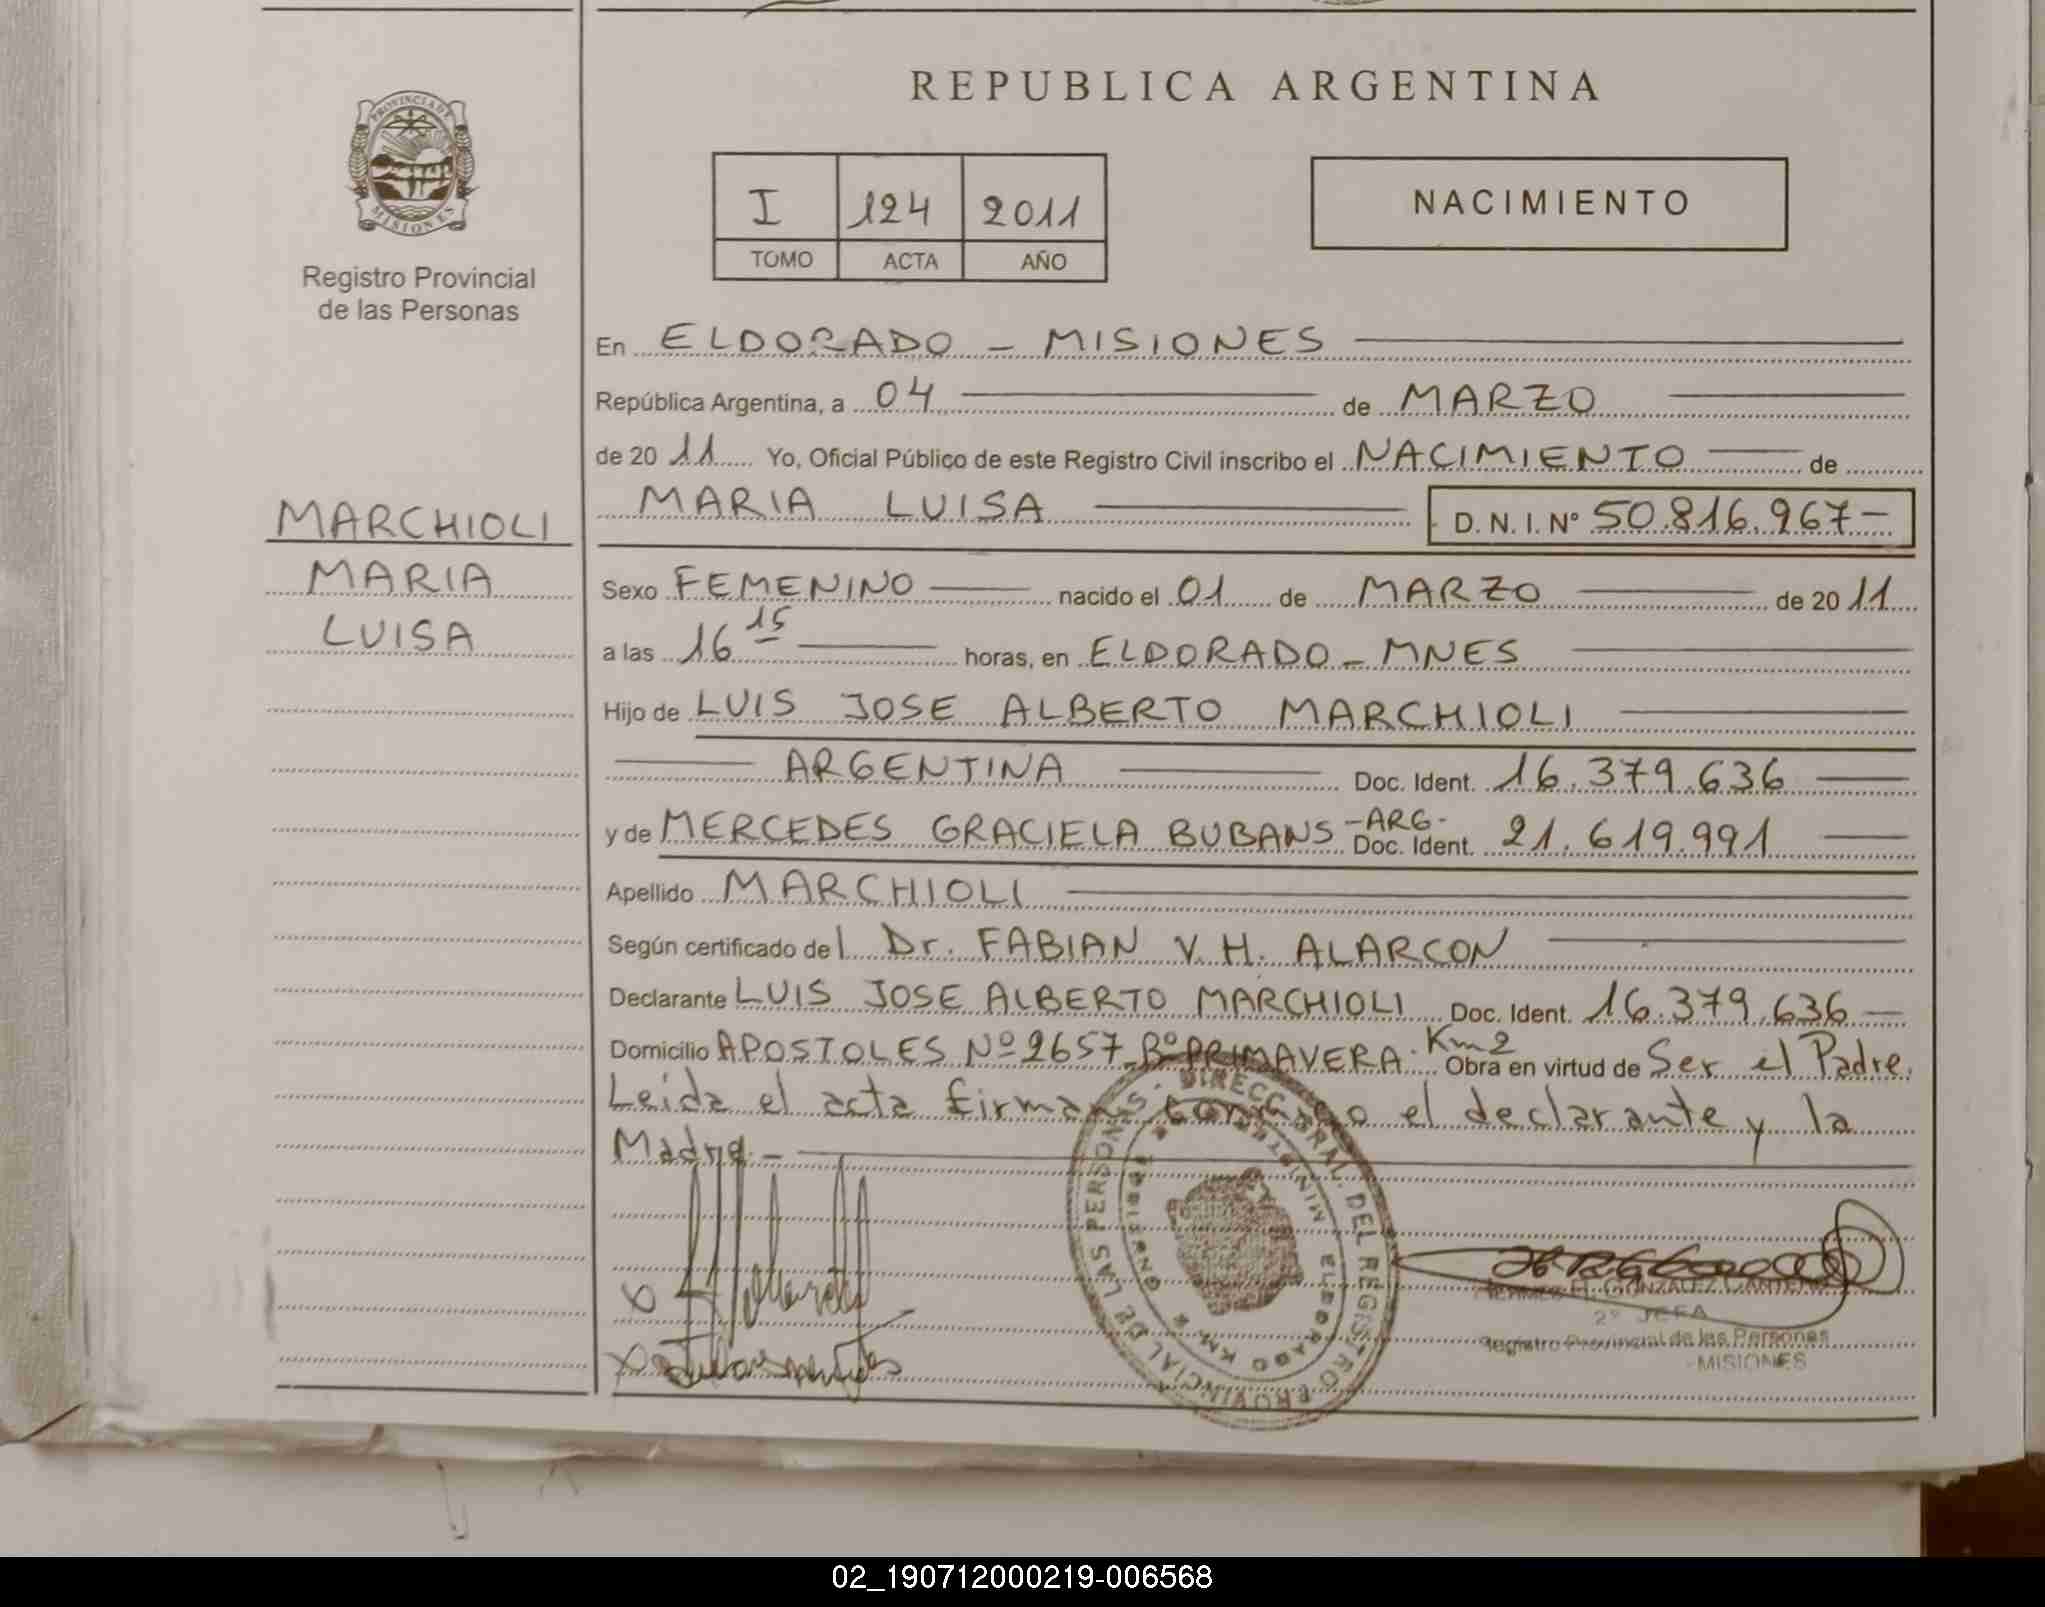 REPUBLICA ARGENTINA
PROVINCIA DE
MISIONES
Registro Provincial
de las Personas
I 124 2011
TOMO ACTA AÑO
NACIMIENTO
En ELDORADO - MISIONES
República Argentina, a 04 de MARZO
de 20 11 Yo, Oficial Público de este Registro Civil inscribo el NACIMIENTO de
MARIA LUISA D. N. I. Nº 50.816.967-
MARCHIOLI
MARIA
LUISA
Sexo FEMENINO nacido el 01 de MARZO de 20 11
a las 16 15 horas, en ELDORADO - MNES
Hijo de LUIS JOSE ALBERTO MARCHIOLI
ARGENTINA Doc. Ident. 16.379.636
y de MERCEDES GRACIELA BUBANS -ARG- Doc. Ident. 21.619.991
Apellido MARCHIOLI
Según certificado del Dr. FABIAN V. H. ALARCON
Declarante LUIS JOSE ALBERTO MARCHIOLI Doc. Ident. 16.379.636
Domicilio APOSTOLES Nº 2657 Bº PRIMAVERA. Km2 Obra en virtud de Ser el Padre.
Leida el acta firman conmigo el declarante y la
Madre.-
DIRECC. GRAL. DEL REGISTRO PROVINCIAL DE LAS PERSONAS
ELDORADO KM
GONZALEZ
2º JEFA
Registro Provincial de las Personas
-MISIONES
02_190712000219-006568